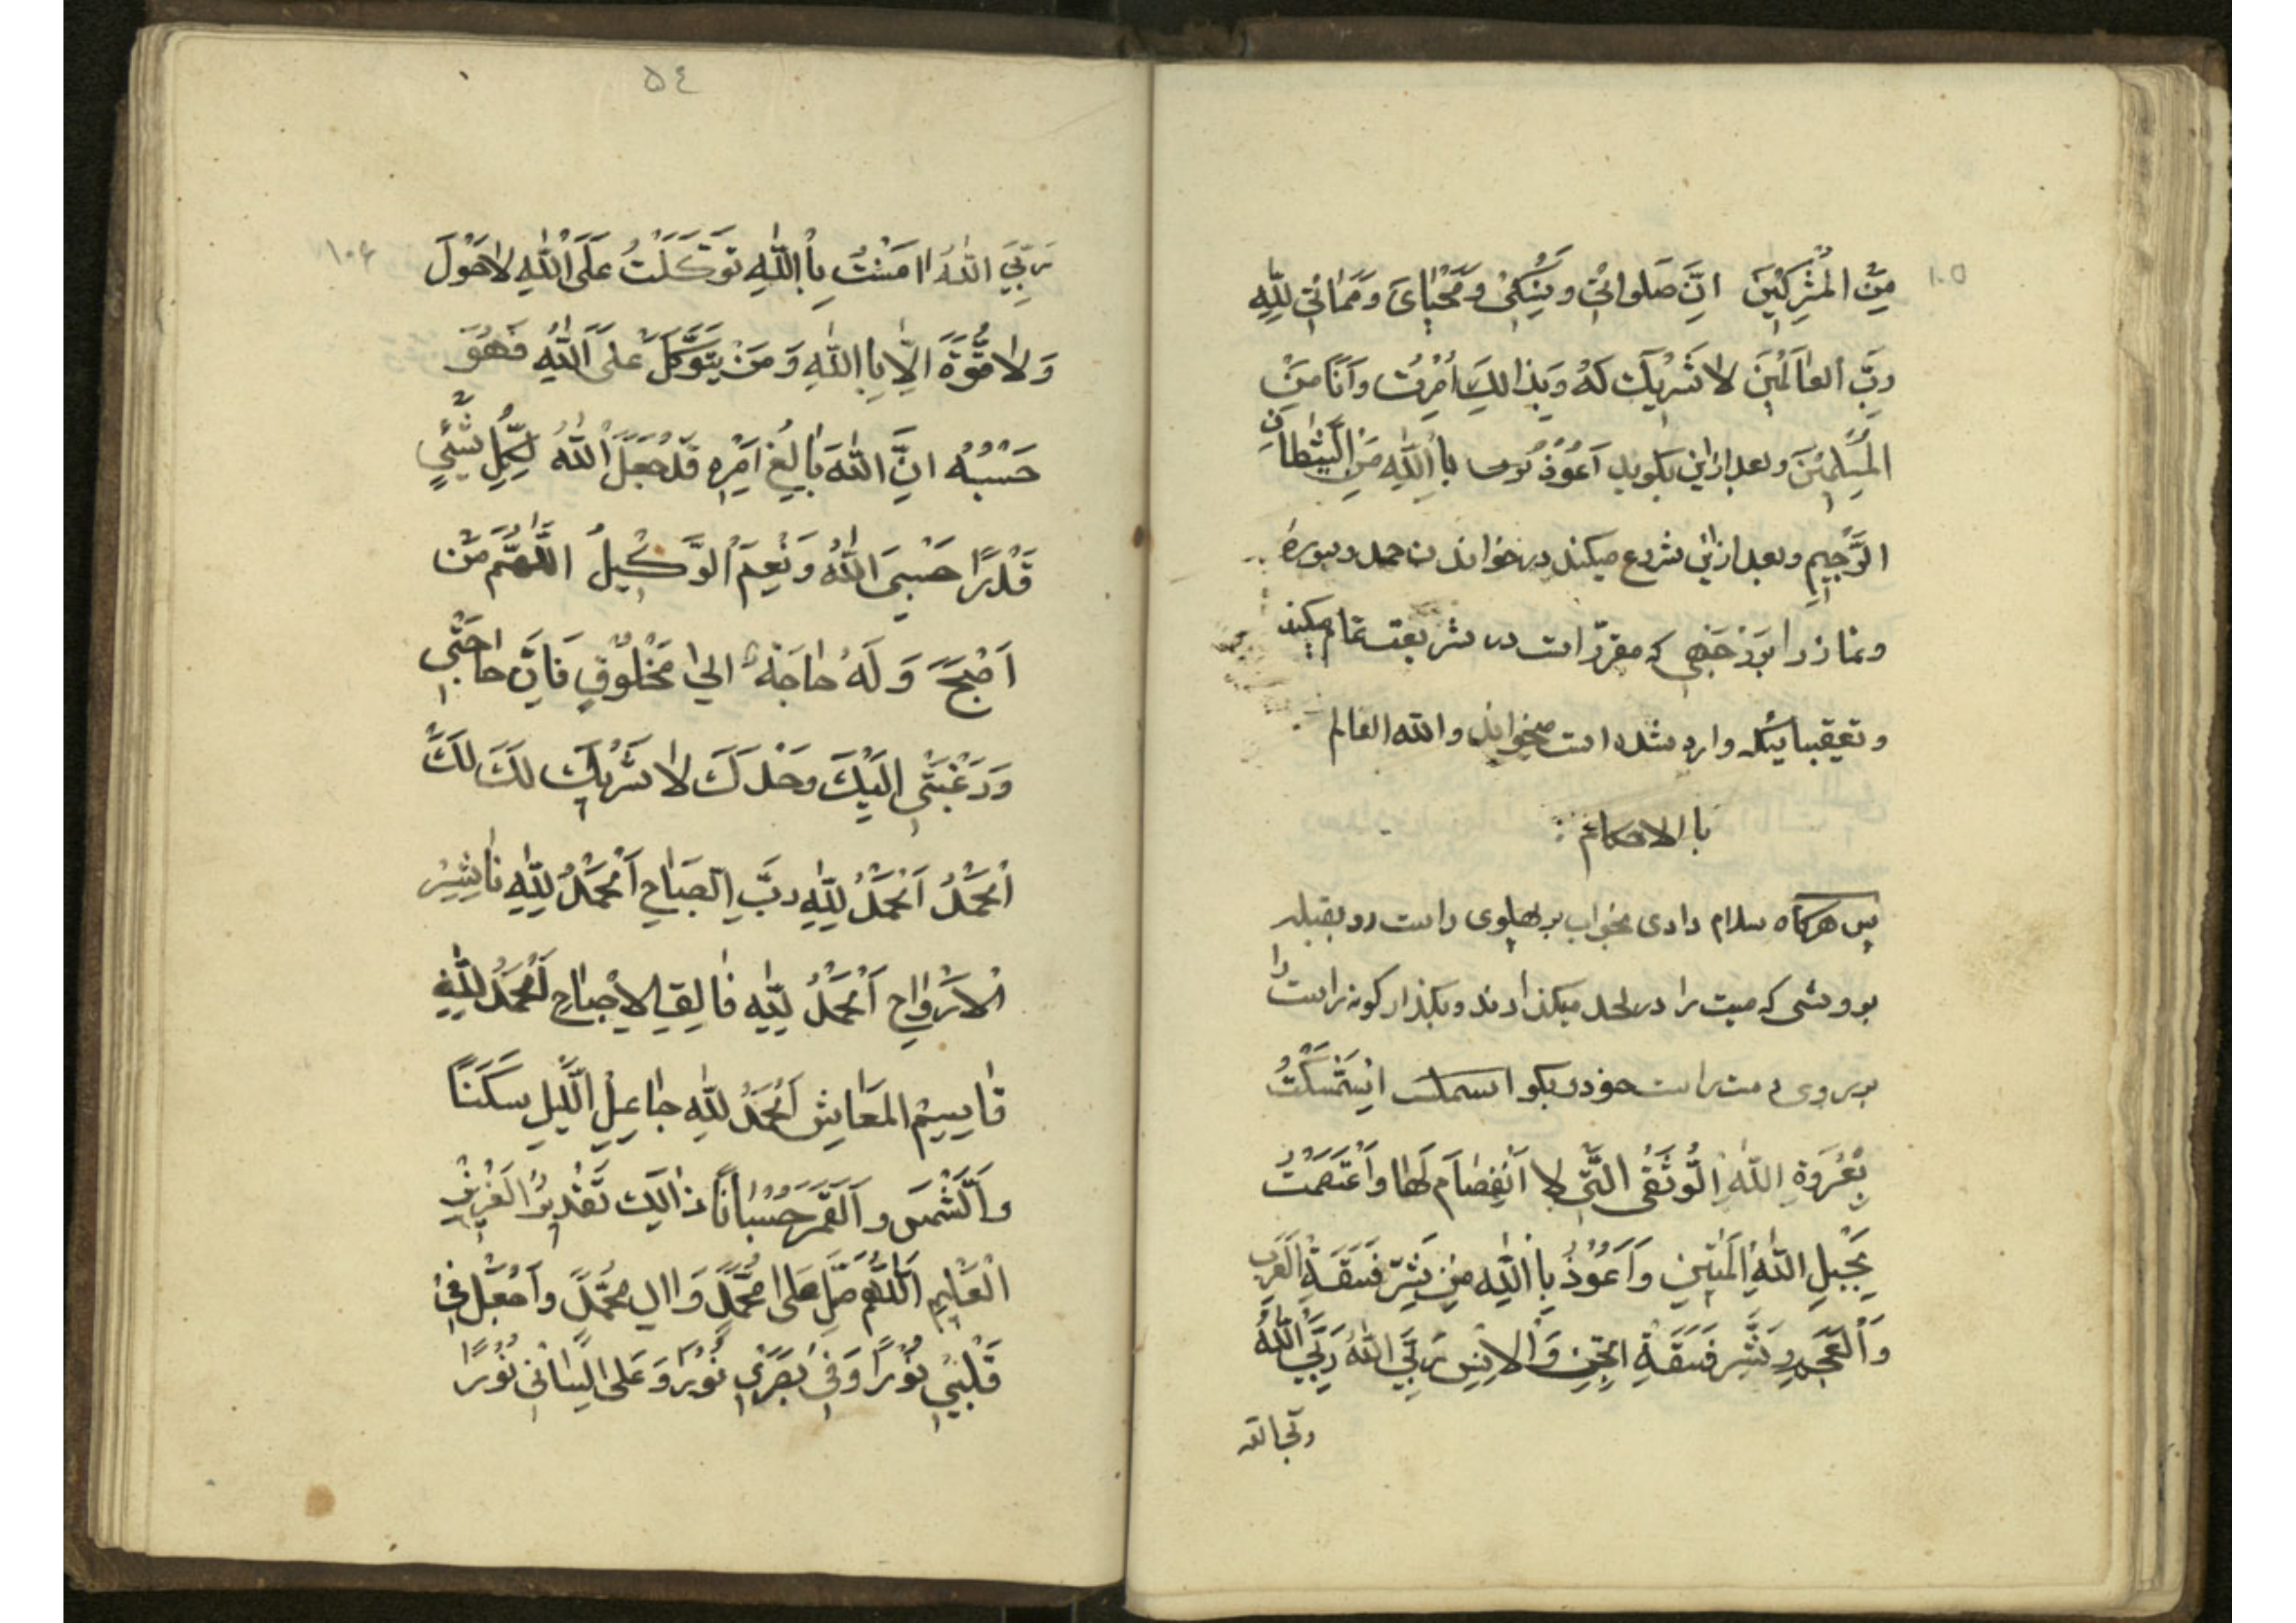 ١٠٥
مِنَ الْمُشْرِكَيْنَ اِنَّ صَلَواتِيْ وَنُسُكِيْ وَمَحْيٰايَ وَمَمٰاتِيْ لِلّٰهِ
رَبِّ العٰالَمْينَ لا شَرْيكَ لَهُ وَبِذالِكَ اُمْرِتُ وَاَنَا مِنَ
الْمُسْلِمْينَ وبعد ازاين بكويد اَعُوْذُ بِااللّٰهِ مِنَ الشَّيْطٰانِ
الرَّجْيمِ وبعد ازاين شروع ميكند در خواندن حمد وسوره
ونماز را بر نهجى كه مقرّر است در شريعت تمام ميكند
وتعقيباتيكه وارد شده است ميخواند والله العالم
با الاحكام
پس هركاه سلام دادى بخواب بر پهلوى راست رو بقبله
بروشى كه ميت را در لحد ميكذارند وبكذار كونه راست را
بر روى دست راست خود وبكو اِسْتَمْسَكْتُ
بِعُرْوَةِ اللّٰهِ الْوُثْقٰى الَّتْي لا اَنْفِصٰامَ لَهٰا وَاَعْتَصَمْتُ
بِحَبْلِ اللّٰهِ الْمَتْينِ وَاَعُوْذُ بِااللّٰهِ مِنْ شَرِّ فَسَقَةِ الْعَرَبِ
وَالْعَجَمِ وَشَرِّ فَسَقَةِ الْجِنِّ وَالْاِنْسِ رَبِّيَ اللّٰهُ رَبِّيَ اللّٰهُ
ربى الله
٥٤
١٠٦
رَبِّيَ اللّٰهُ اٰمَنْتُ بِااللّٰهِ تَوَكَّلْتُ عَلَى اللّٰهِ لاٰ حَوْلَ
وَلاٰ قُوَّةَ اِلّٰا بِااللّٰهِ وَمَنْ يَتَوَكَّلْ عَلَى اللّٰهِ فَهُوَ
حَسْبُهُ اِنَّ اللّٰهَ بٰالِغُ اَمْرِهِ قَدْ جَعَلَ اللّٰهُ لِكُلِّ شَيْئٍ
قَدْرًا حَسْبِيَ اللّٰهُ وَنِعْمَ الْوَكْيلُ اَللّٰهُمَّ مَنْ
اَصْبَحَ وَلَهُ حٰاجَةٌ اِلىٰ مَخْلُوْقٍ فَاِنَّ حٰاجَتْي
وَرَغْبَتْي اِلَيْكَ وَحْدَكَ لاٰ شَرْيكَ لَكَ لَكَ
الْحَمْدُ اَلْحَمْدُ لِلّٰهِ رَبِّ الصَّبٰاحِ اَلْحَمْدُ لِلّٰهِ نٰاشِرِ
الْاَرْوٰاحِ اَلْحَمْدُ لِلّٰهِ فٰالِقِ الْاِصْبٰاحِ اَلْحَمْدُ لِلّٰهِ
قٰاسِمِ الْمَعٰايِشِ اَلْحَمْدُ لِلّٰهِ جٰاعِلِ اللَّيْلِ سَكَنًا
وَالشَّمْسَ وَالْقَمَرَ حُسْبٰانًا ذٰالِكَ تَقْدْيرُ الْعَزْيزِ
الْعَلْيمِ اَللّٰهُمَّ صَلِّ عَلىٰ مُحَمَّدٍ وَاٰلِ مُحَمَّدٍ وَاجْعَلْ فْي
قَلْبْي نُوْرًا وَفْي بَصَرْي نُوْرًا وَعَلىٰ لِسٰانْي نُوْرًا